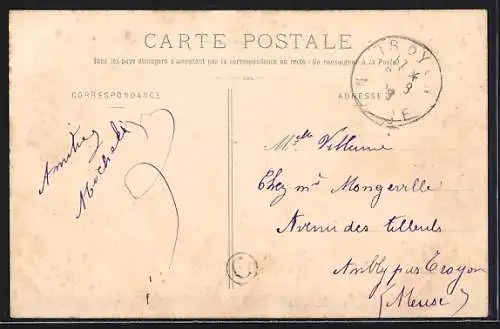 CARTE POSTALE
Tous les pays étrangers n'acceptent pas la correspondance au recto (Se renseigner à la Poste)
CORRESPONDANCE
ADRESSE
TROYON
Amitiés
Mlle Villaume
Chez me Mongeville
Avenue des tilleuls
Ambly par Troyon
(Meuse)